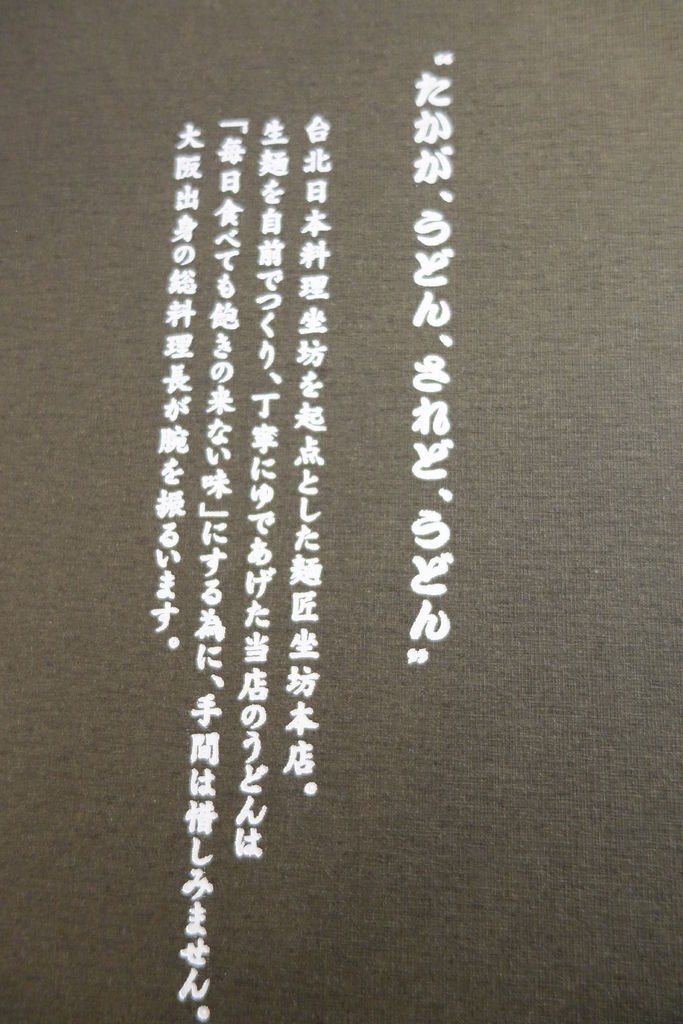 “たかが、うどん、されど、うどん”
台北日本料理坐坊を起点とした麺匠坐坊本店。
生麺を自前でつくり、丁寧にゆであげた当店のうどんは
「毎日食べても飽きの来ない味」にする為に、手間は惜しみません。
大阪出身の総料理長が腕を振るいます。